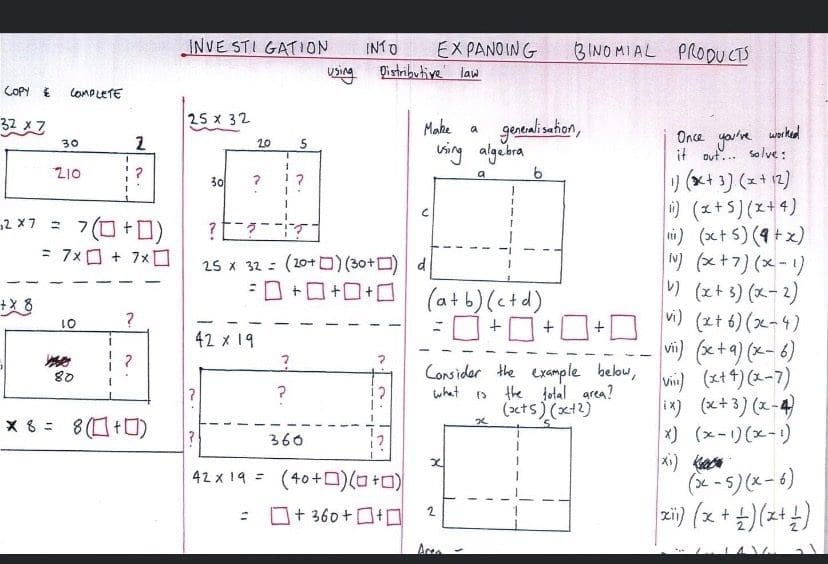 INVESTIGATION INTO EXPANDING BINOMIAL PRODUCTS
using Distributive law
COPY & COMPLETE
32 x 7
30 2
210 ?
32 x 7 = 7(□ + □)
= 7x□ + 7x□
+ x 8
10 ?
80 ?
x 8 = 8(□+□)
25 x 32
20 5
30 ? ?
? ? ?
25 x 32 = (20+□)(30+□)
= □+□+□+□
42 x 19
? ?
? ? ?
? 360 ?
42 x 19 = (40+□)(□+□)
= □+360+□+□
Make a generalisation,
using algebra
a b
c
d
(a+b)(c+d)
= □ + □ + □ + □
Consider the example below,
what is the total area?
(x+5)(x+2)
x 5
x
2
Area =
Once you've worked
it out... solve:
i) (x+3)(x+12)
ii) (x+5)(x+4)
iii) (x+5)(9+x)
iv) (x+7)(x-1)
v) (x+3)(x-2)
vi) (x+6)(x-4)
vii) (x+9)(x-6)
viii) (x+4)(x-7)
ix) (x+3)(x-4)
x) (x-1)(x-1)
xi)
(x-5)(x-6)
xii) (x + 1/2)(x + 1/2)